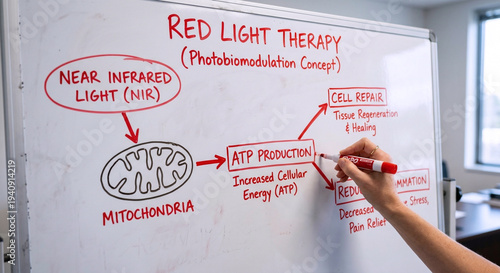 RED LIGHT THERAPY
(Photobiomodulation Concept)
NEAR INFRARED
LIGHT (NIR)
MITOCHONDRIA
ATP PRODUCTION
Increased Cellular
Energy (ATP)
CELL REPAIR
Tissue Regeneration
& Healing
Decreased Stress,
Pain Relief
Adobe Stock | #1940914219